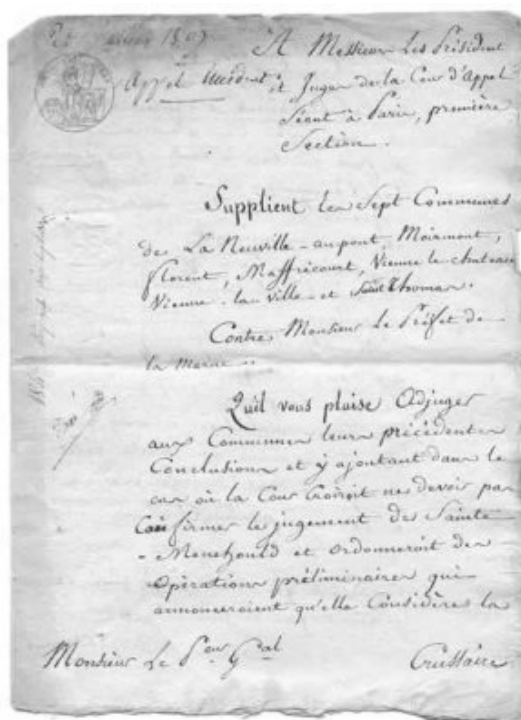 1807
A Messieurs Les Président
Appel incident
et Juges de la Cour d'Appel
Séant à Paris, première
Section.
Supplient les Sept Communes
de La Neuville-au-pont, Moirmont,
florent, Maffrécourt, Vienne le chateau
Vienne-la-ville et Saint Thomas.
Contre Monsieur Le Préfet de
la Marne..
Quil vous plaise Adjuger
aux Communes leurs précédentes
Conclusions et y ajoutant dans le
cas où la Cour Croiroit ne devoir pas
Confirmer le jugement de Sainte
-Menehould et ordonneroit des
opérations préliminaires qui
annonceroient qu'elle Considère la
Monsieur Le P.eur G.al